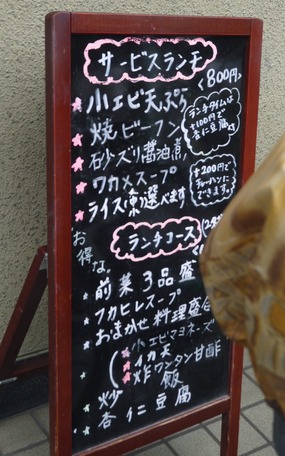 サービスランチ
<800円>
小エビ天ぷら
焼ビーフン
砂ズリ醤油煮
ワカメスープ
ライス
選べます
ランチタイムは
+100円で
杏仁豆腐
+200円で
チャーハンに
できます。
ランチコース
お得な
前菜3品盛
フカヒレスープ
おまかせ料理盛合
小エビマヨネーズ
イカ天
炸ワンタン甘酢
炒飯
杏仁豆腐